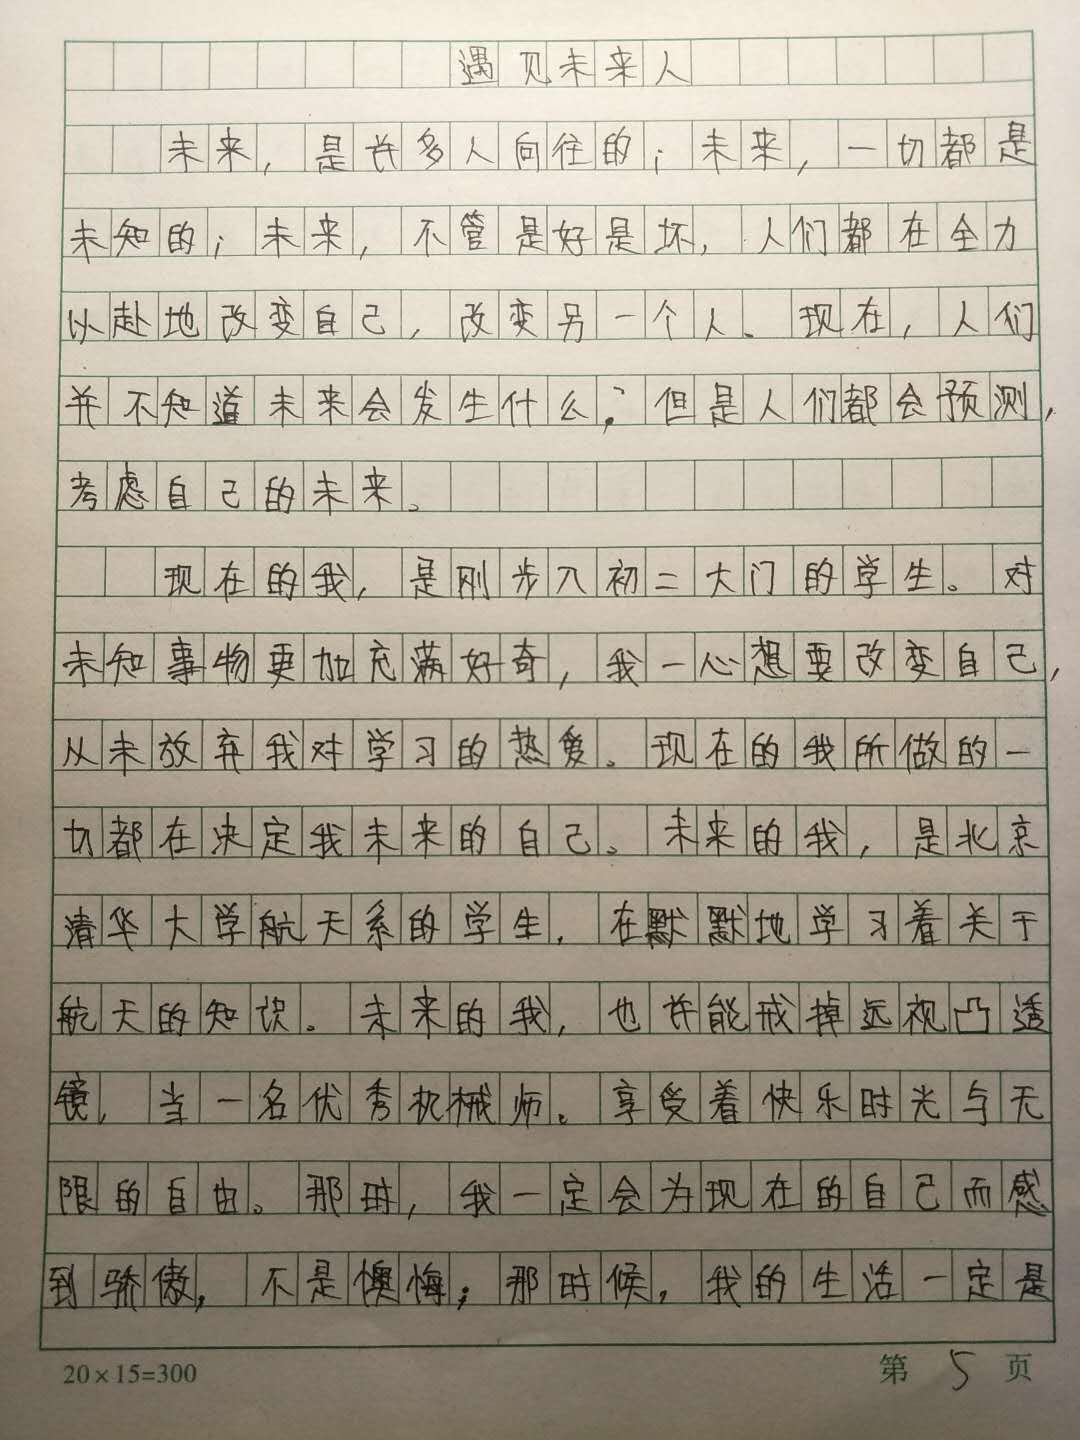 遇见未来人
未来，是许多人向往的；未来，一切都是
未知的；未来，不管是好是坏，人们都在全力
以赴地改变自己，改变另一个人。现在，人们
并不知道未来会发生什么？但是人们都会预测，
考虑自己的未来。
现在的我，是刚步入初二大门的学生。对
未知事物更加充满好奇，我一心想要改变自己，
从未放弃我对学习的热爱。现在的我所做的一
切都在决定我未来的自己。未来的我，是北京
清华大学航天系的学生，在默默地学习着关于
航天的知识。未来的我，也许能戒掉远视凸透
镜，当一名优秀机械师。享受着快乐时光与无
限的自由。那时，我一定会为现在的自己而感
到骄傲，不是懊悔；那时候，我的生活一定是
20×15=300
第 5 页